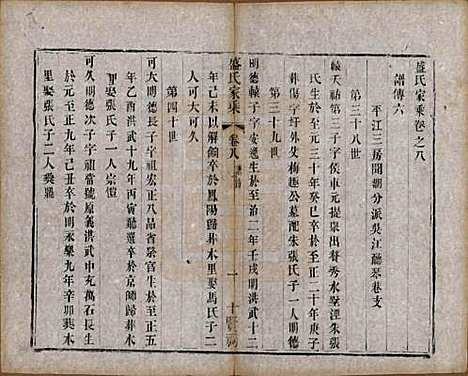 盛氏家乘卷之八
譜傳六
平江三房開湖分派吳江聽琴巷支
第三十八世
轅天祐第三子字侯車元提泉出贅秀水墅涇朱張
氏生於元三十年癸巳卒於至正二十年庚子
葬傷字圩外父梅趣公墓配朱張氏子一人明德
第三十九世
明德轅子字安遇生於至治二年壬戌明洪武十二
盛氏家乘
卷八
一
年己未以解領卒於鳳陽歸葬木里娶馬氏子二
人可大可久
第四十世
可大明德長子字祖宏正八品省祭官生於至正五
年乙酉洪武十九年丙寅聽選卒於京師歸葬木
里娶張氏子一人宗愷
可久明德次子字祖賢當號原義洪武中充萬石長生
於元至正九年己丑卒於明永樂九年辛卯葬木
里娶張氏子二人奕